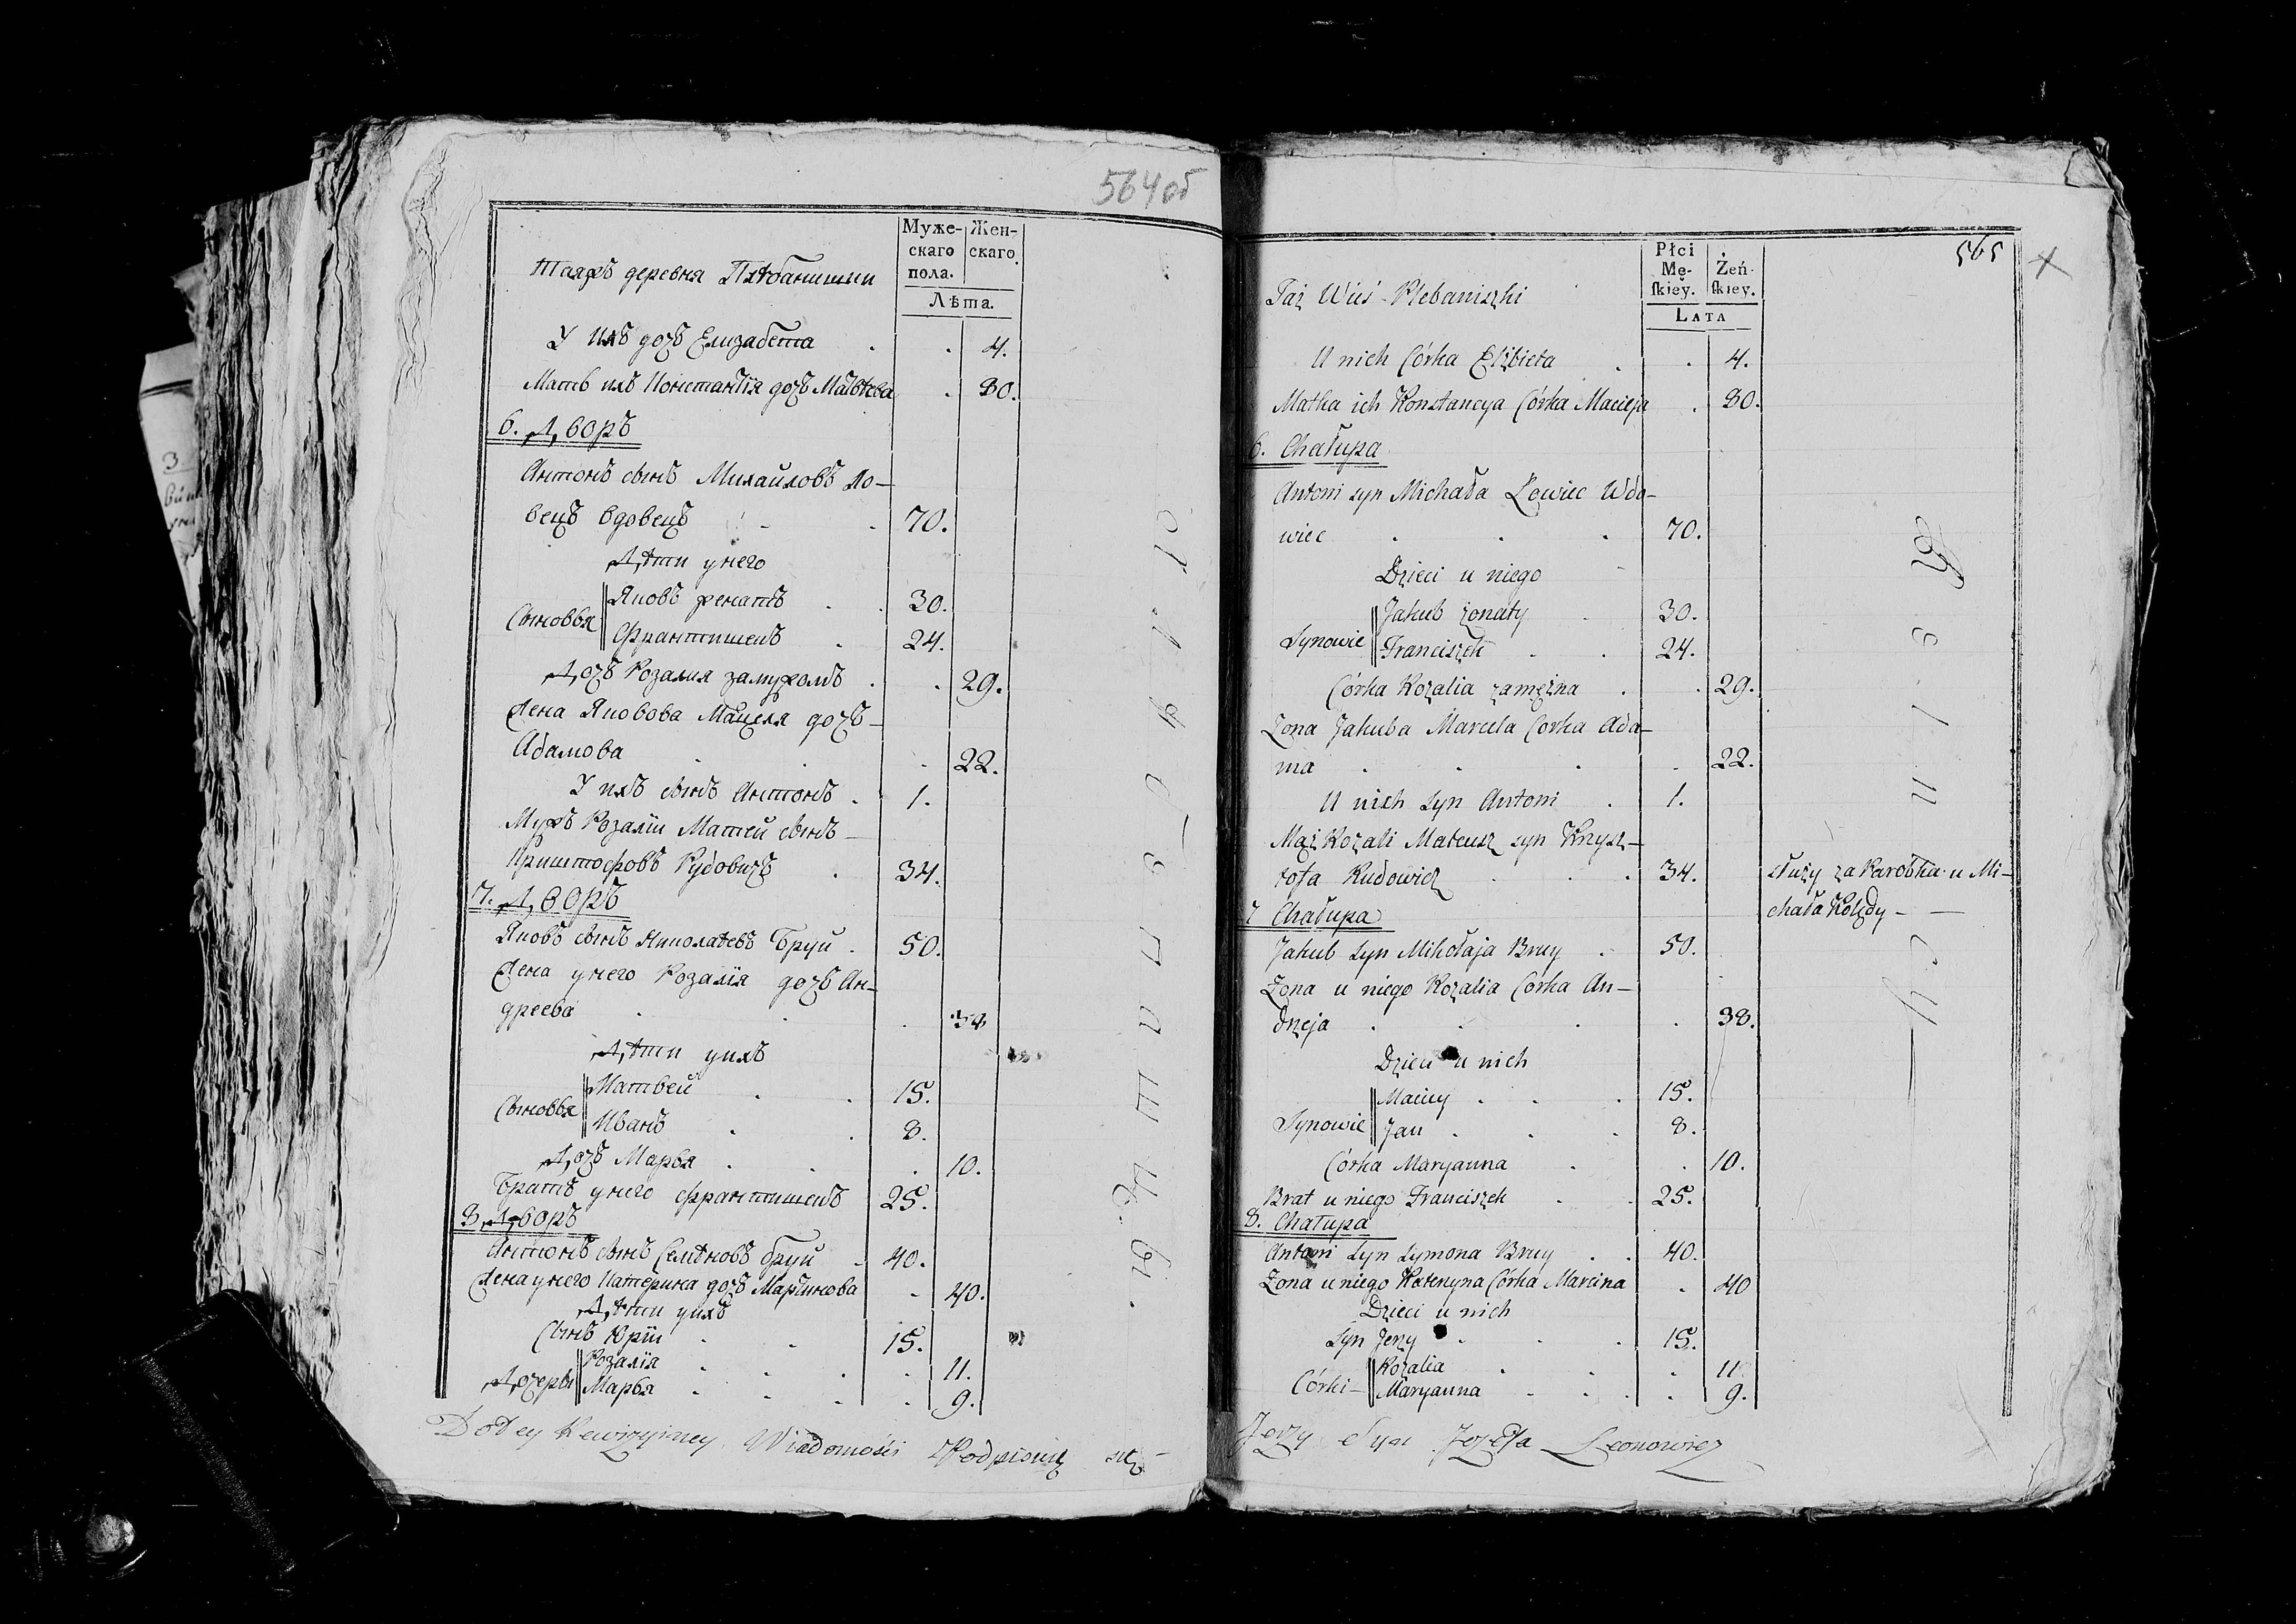 564об
Муже- Жен-
скаго скаго.
пола.
Лѣта.
Таяжъ деревня Плѣбанишки
У ихъ дочь Елизабета . . 4.
Мать ихъ Констанція дочь Матвѣева . 80.
6. Дворъ
Антонъ сынъ Михайловъ Ло-
вецъ вдовецъ . 70.
Дѣти у него
Сыновья Яковъ женатъ . . 30.
Францишекъ . 24.
Дочь Розалия замужемъ . . 29.
Жена Яковова Мацеля дочь
Адамова . . . 22.
У ихъ сынъ Антонъ . 1.
Мужъ Розаліи Матей сынъ
Криштофовъ Рудовичъ . 34.
7. Дворъ
Яковъ сынъ Николаевъ Бруй . 50.
Жена у него Розалія дочь Ан-
дреева . . . 38
Дѣти у ихъ
Сыновья Матвей . . 15.
Иванъ . . 8.
Дочь Марья . . . 10.
Братъ у него Францишекъ 25.
8. Дворъ
Антонъ сынъ Семѣновъ Бруй . 40.
Жена у него Катерина дочь Мартинова . 40.
Дѣти у ихъ
Сынъ Юрій . . 15.
Дочеры Розалія . . . . 11.
Марья . . . . 9.
Do tey Rewizyiney Wiadomości Podpisuię się
565
Płci Żeń-
Mę- skiey.
skiey.
LATA
Taż Wieś Plebaniszki
U nich Córka Elżbieta . . 4.
Matka ich Konstancya Córka Macieja . 80.
6. Chałupa
Antoni syn Michała Łowiec Wdo-
wiec . . . 70.
Dzieci u niego
Synowie Jakub żonaty . 30.
Franciszek . . 24.
Córka Rozalia zamężna . . 29.
Żona Jakuba Marcela Corka Ada-
ma . . . . 22.
U nich syn Antoni . 1.
Mąż Rozali Mateusz syn Krzysz-
tofa Rudowicz . . . 34. służy za Parobka u Mi-
7 Chałupa chała Kolędy - -
Jakub syn Mikołaja Bruy . 50.
Żona u niego Rozalia Corka An-
drzeja . . . . 38.
Dzieci u nich
Synowie Maciey . . . 15.
Jan . . . 8.
Córka Maryanna . . 10.
Brat u niego Franciszek . . 25.
8. Chałupa
Antoni syn Symona Bruy . . 40.
Żona u niego Kateryna Córka Marcina . 40
Dzieci u nich
Syn Jerzy . . . 15.
Córki Rozalia . . . 11.
Maryanna . . . . 9.
Jerzy Syn Jozefa Leonowicz